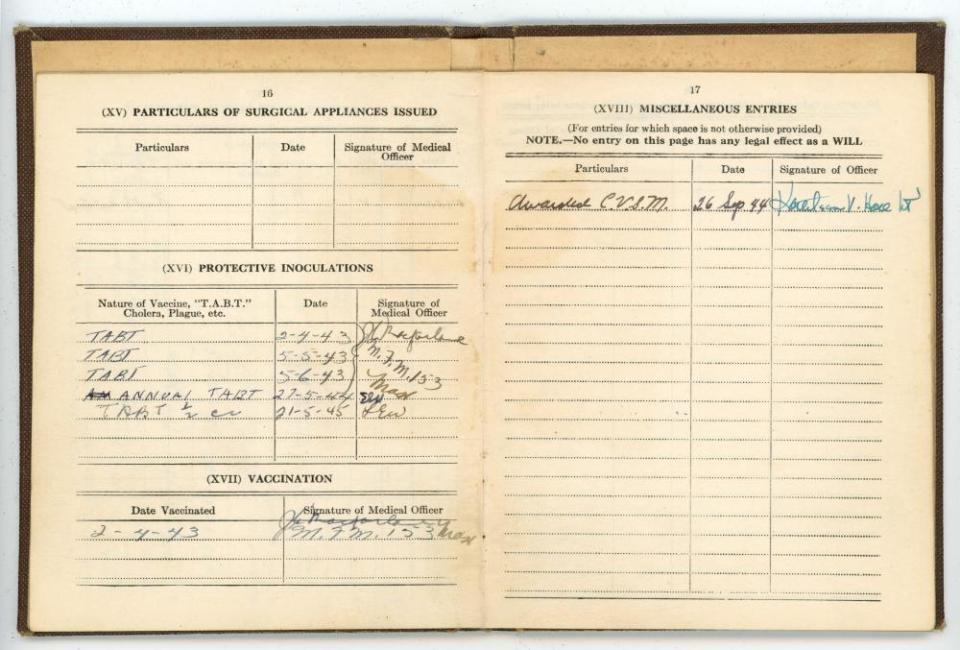 16
(XV) PARTICULARS OF SURGICAL APPLIANCES ISSUED
Particulars Date Signature of Medical Officer
(XVI) PROTECTIVE INOCULATIONS
Nature of Vaccine, "T.A.B.T." Cholera, Plague, etc. Date Signature of Medical Officer
TABT 2-4-43 Macfarlane
TABT 5-5-43
TABT 5-6-43 M.F.M. 153
ANNUAL TABT 27-5-44
TABT ½ cc 21-5-45
(XVII) VACCINATION
Date Vaccinated Signature of Medical Officer
2-4-43 Macfarlane
M.F.M. 153
17
(XVIII) MISCELLANEOUS ENTRIES
(For entries for which space is not otherwise provided)
NOTE.—No entry on this page has any legal effect as a WILL
Particulars Date Signature of Officer
Awarded C.V.S.M. 26 Sep 44